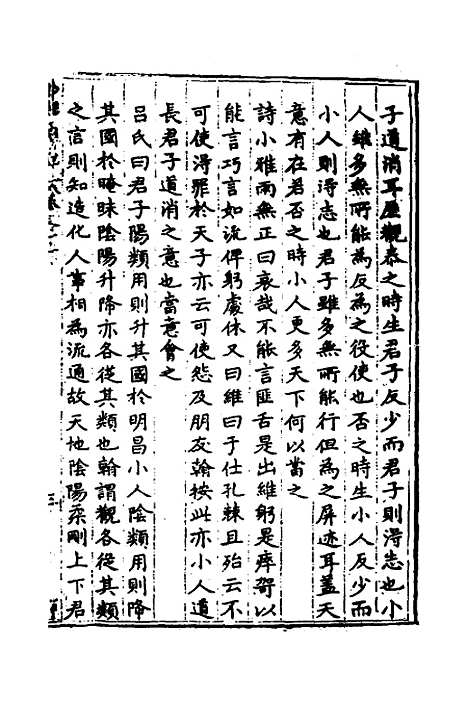 子道消耳屢觀泰之時生君子反少而君子則得志也小
人雖多無所能為反為之役使也否之時生小人反少而
小人則得志也君子雖多無所能行但為之屏迹耳蓋天
意有在若否之時小人更多天下何以當之
詩小雅雨無正曰哀哉不能言匪舌是出維躬是瘁哿以
能言巧言如流俾躬處休又曰維曰于仕孔棘且殆云不
可使得罪於天子亦云可使怨及朋友翰按此亦小人道
長君子道消之意也當意會之
呂氏曰君子陽類用則升其國於明昌小人陰類用則降
其國於晻昧陰陽升降亦各從其類也翰謂觀各從其類
之言則知造化人事相為流通故天地陰陽柔剛上下君